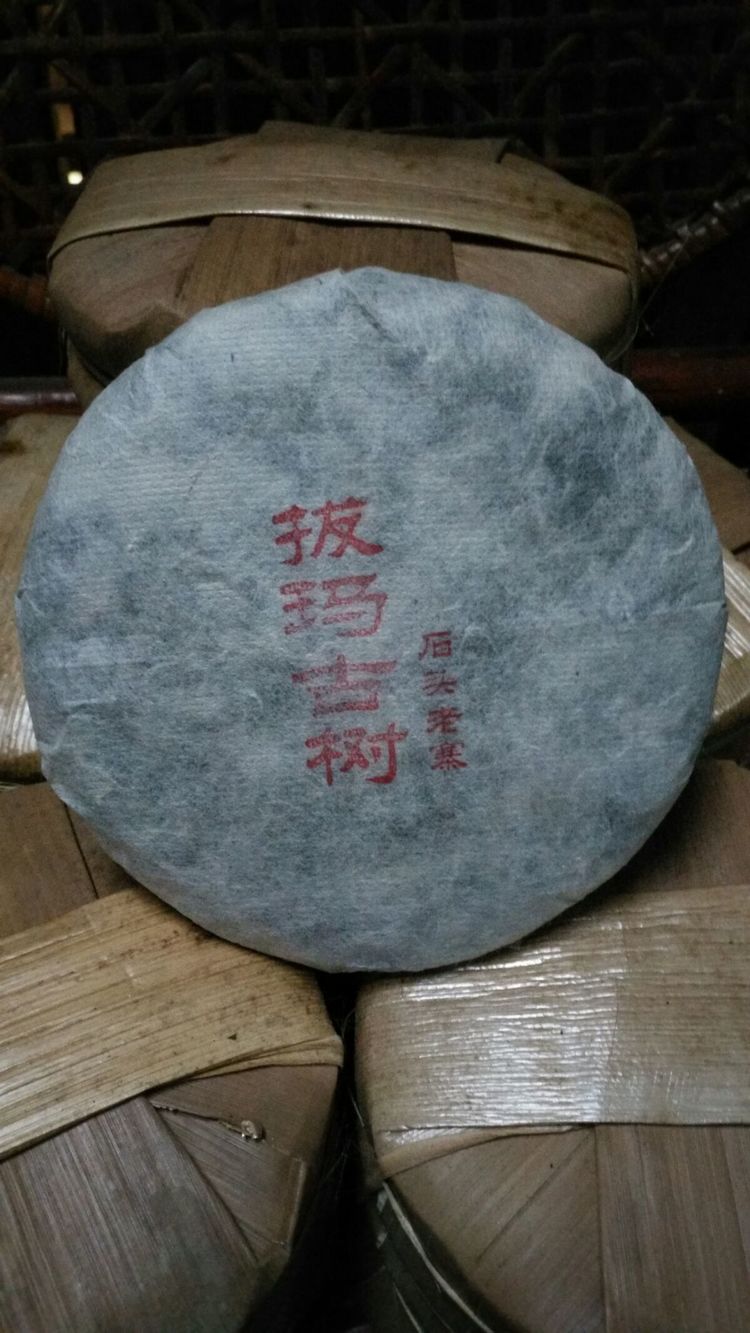 拔玛古树
石头老寨